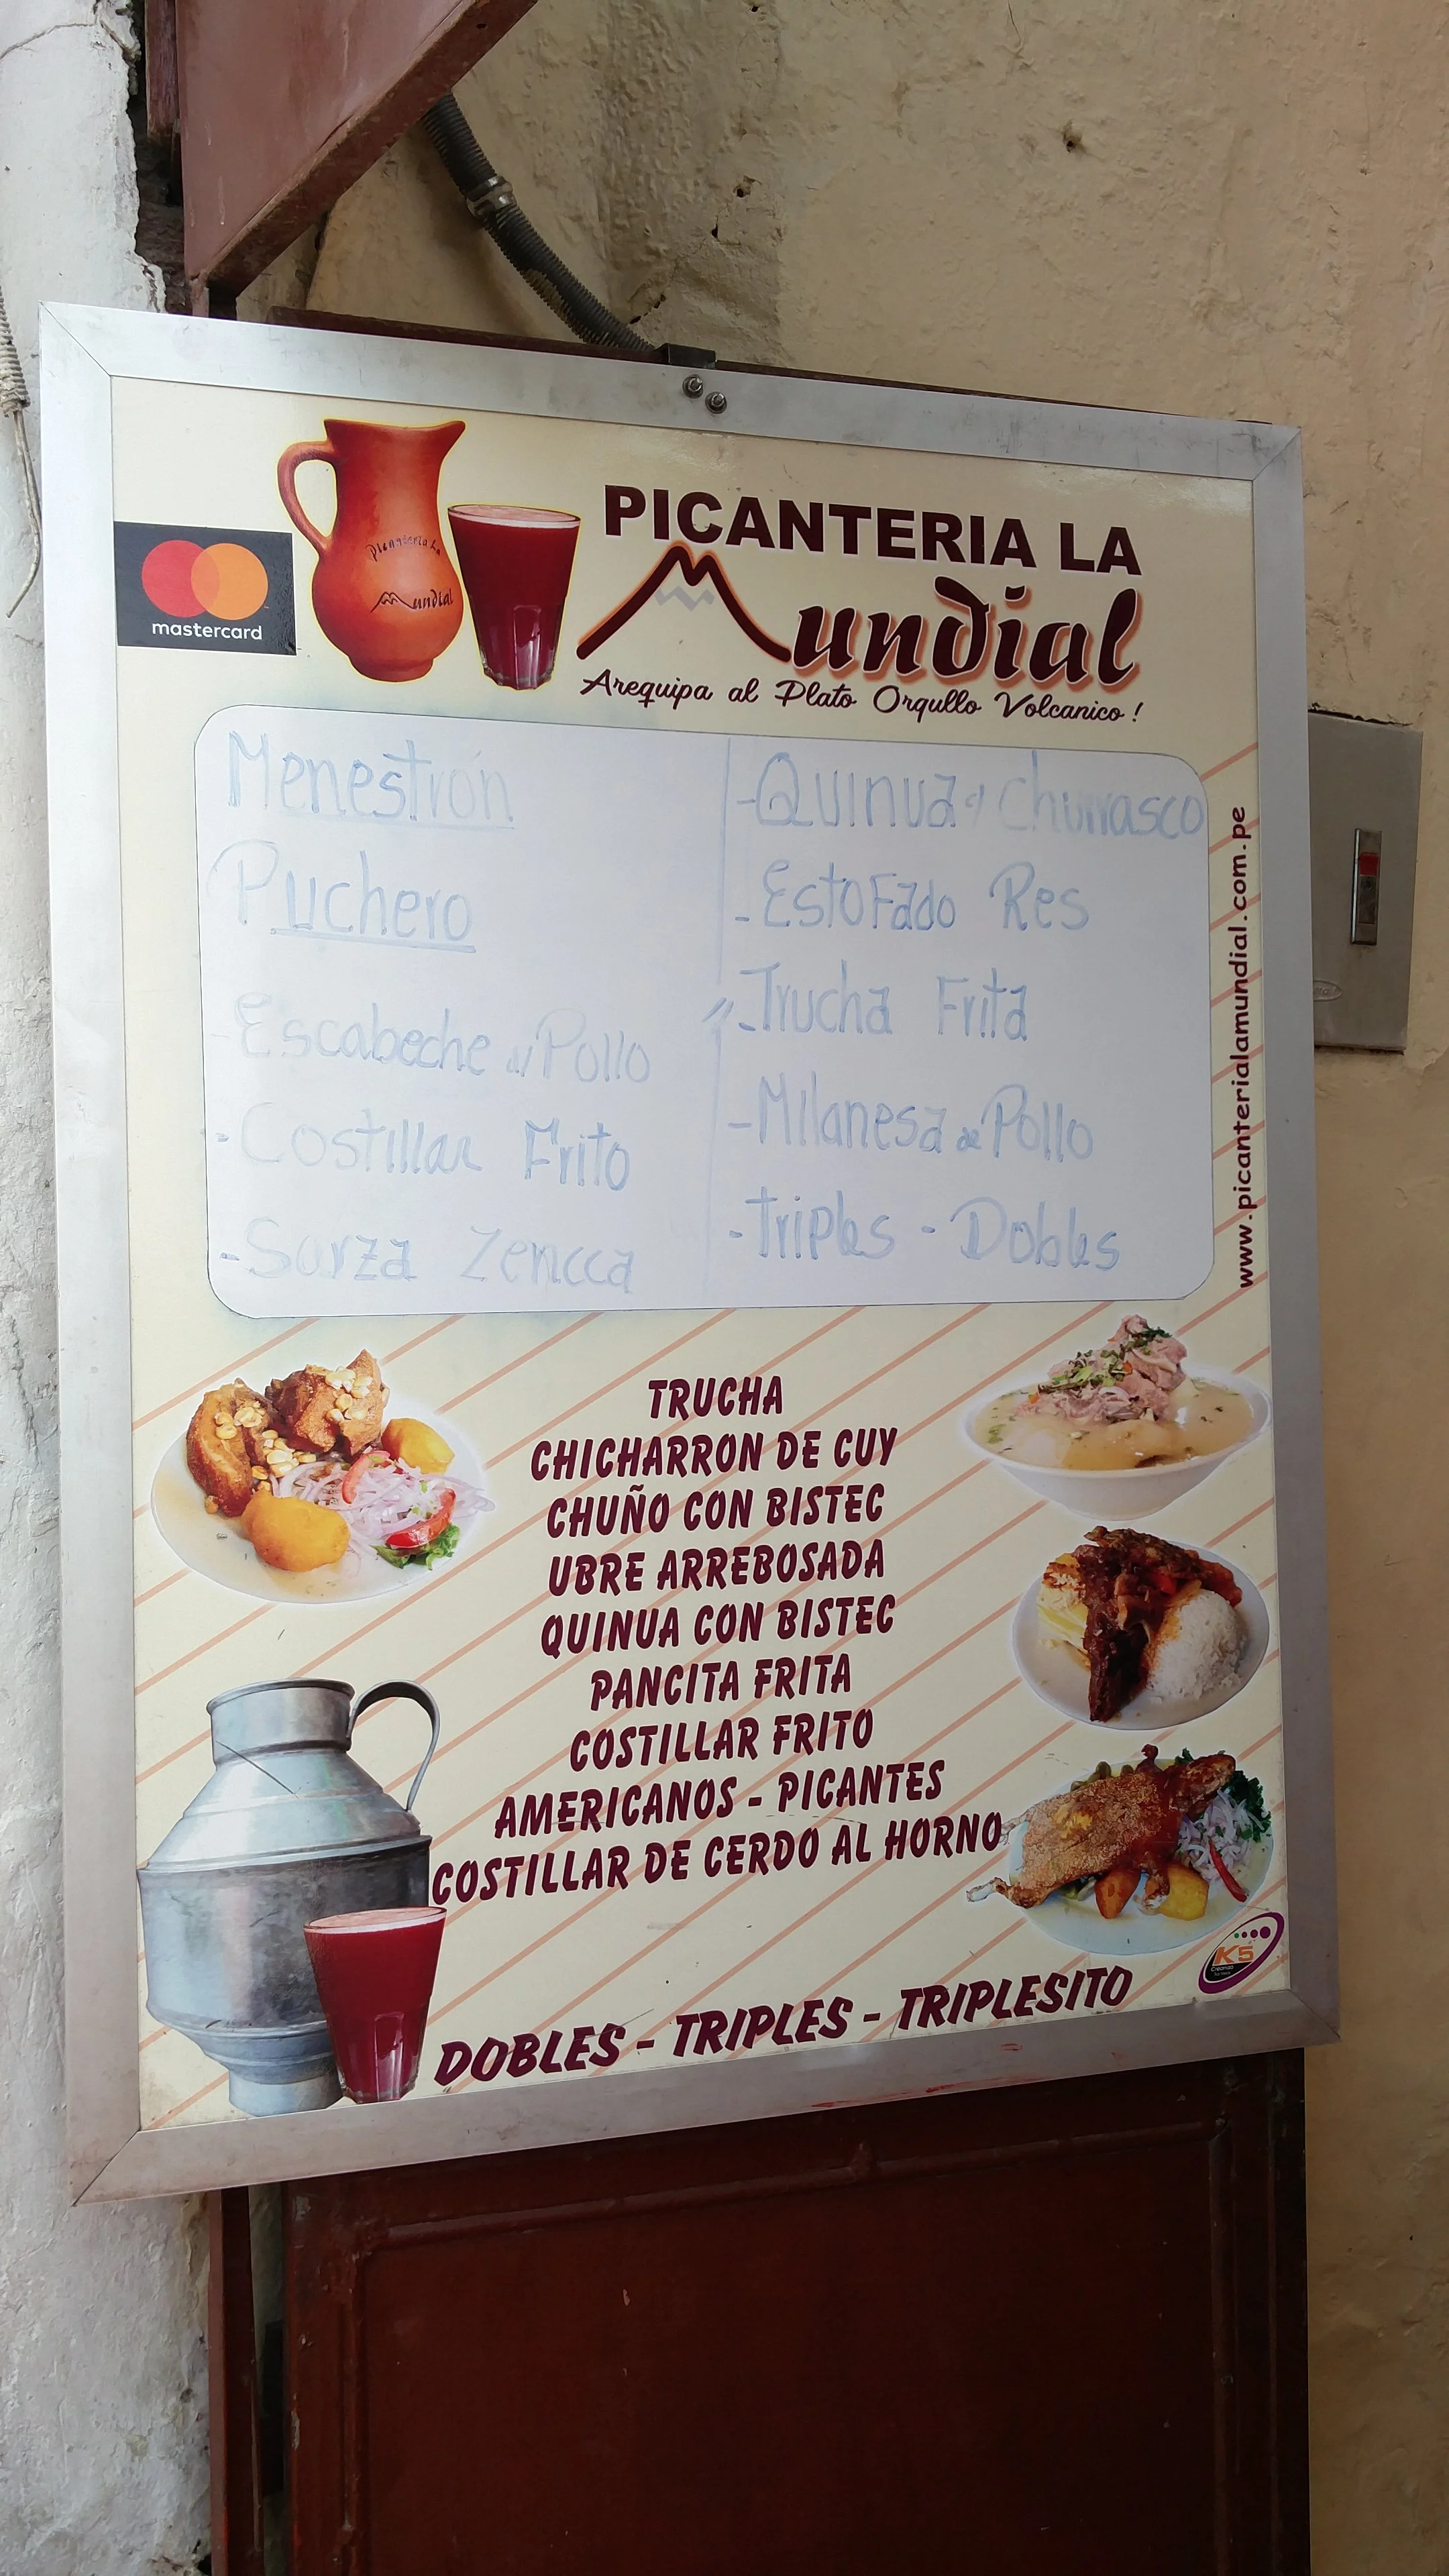 mastercard
Picanteria La
Mundial
PICANTERIA LA
Mundial
Arequipa al Plato Orgullo Volcanico !
Menestrón
Puchero
-Escabeche Pollo
-Costillar Frito
-Sarza Zencca
-Quinua Churrasco
-Estofado Res
-Trucha Frita
-Milanesa de Pollo
-Triples - Dobles
www.picanterialamundial.com.pe
TRUCHA
CHICHARRON DE CUY
CHUÑO CON BISTEC
UBRE ARREBOSADA
QUINUA CON BISTEC
PANCITA FRITA
COSTILLAR FRITO
AMERICANOS - PICANTES
COSTILLAR DE CERDO AL HORNO
K5
DOBLES - TRIPLES - TRIPLESITO